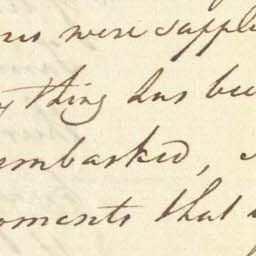 were supple
thing has bee
embarked,
oments that